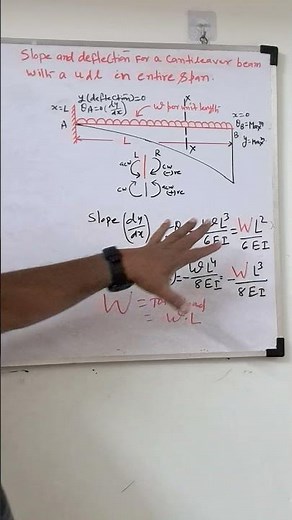 Slope and deflection for a cantileaver beam
with a udl on entire span.
y(deflection)=0
x=L θA=0(dy/dx) w per unit length x x=0
θB=Max^m
A B
L x y=Max^m
L R
acw cw
(-)ve
cw acw
(+)ve
Slope (dy/dx) L³/6EI = WL²/6EI
= -wL⁴/8EI = -WL³/8EI
W = Total load
= w·L